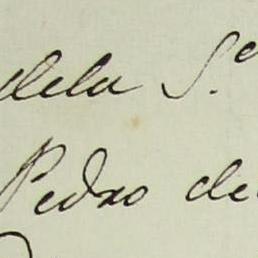 dela S.e
Pedro de